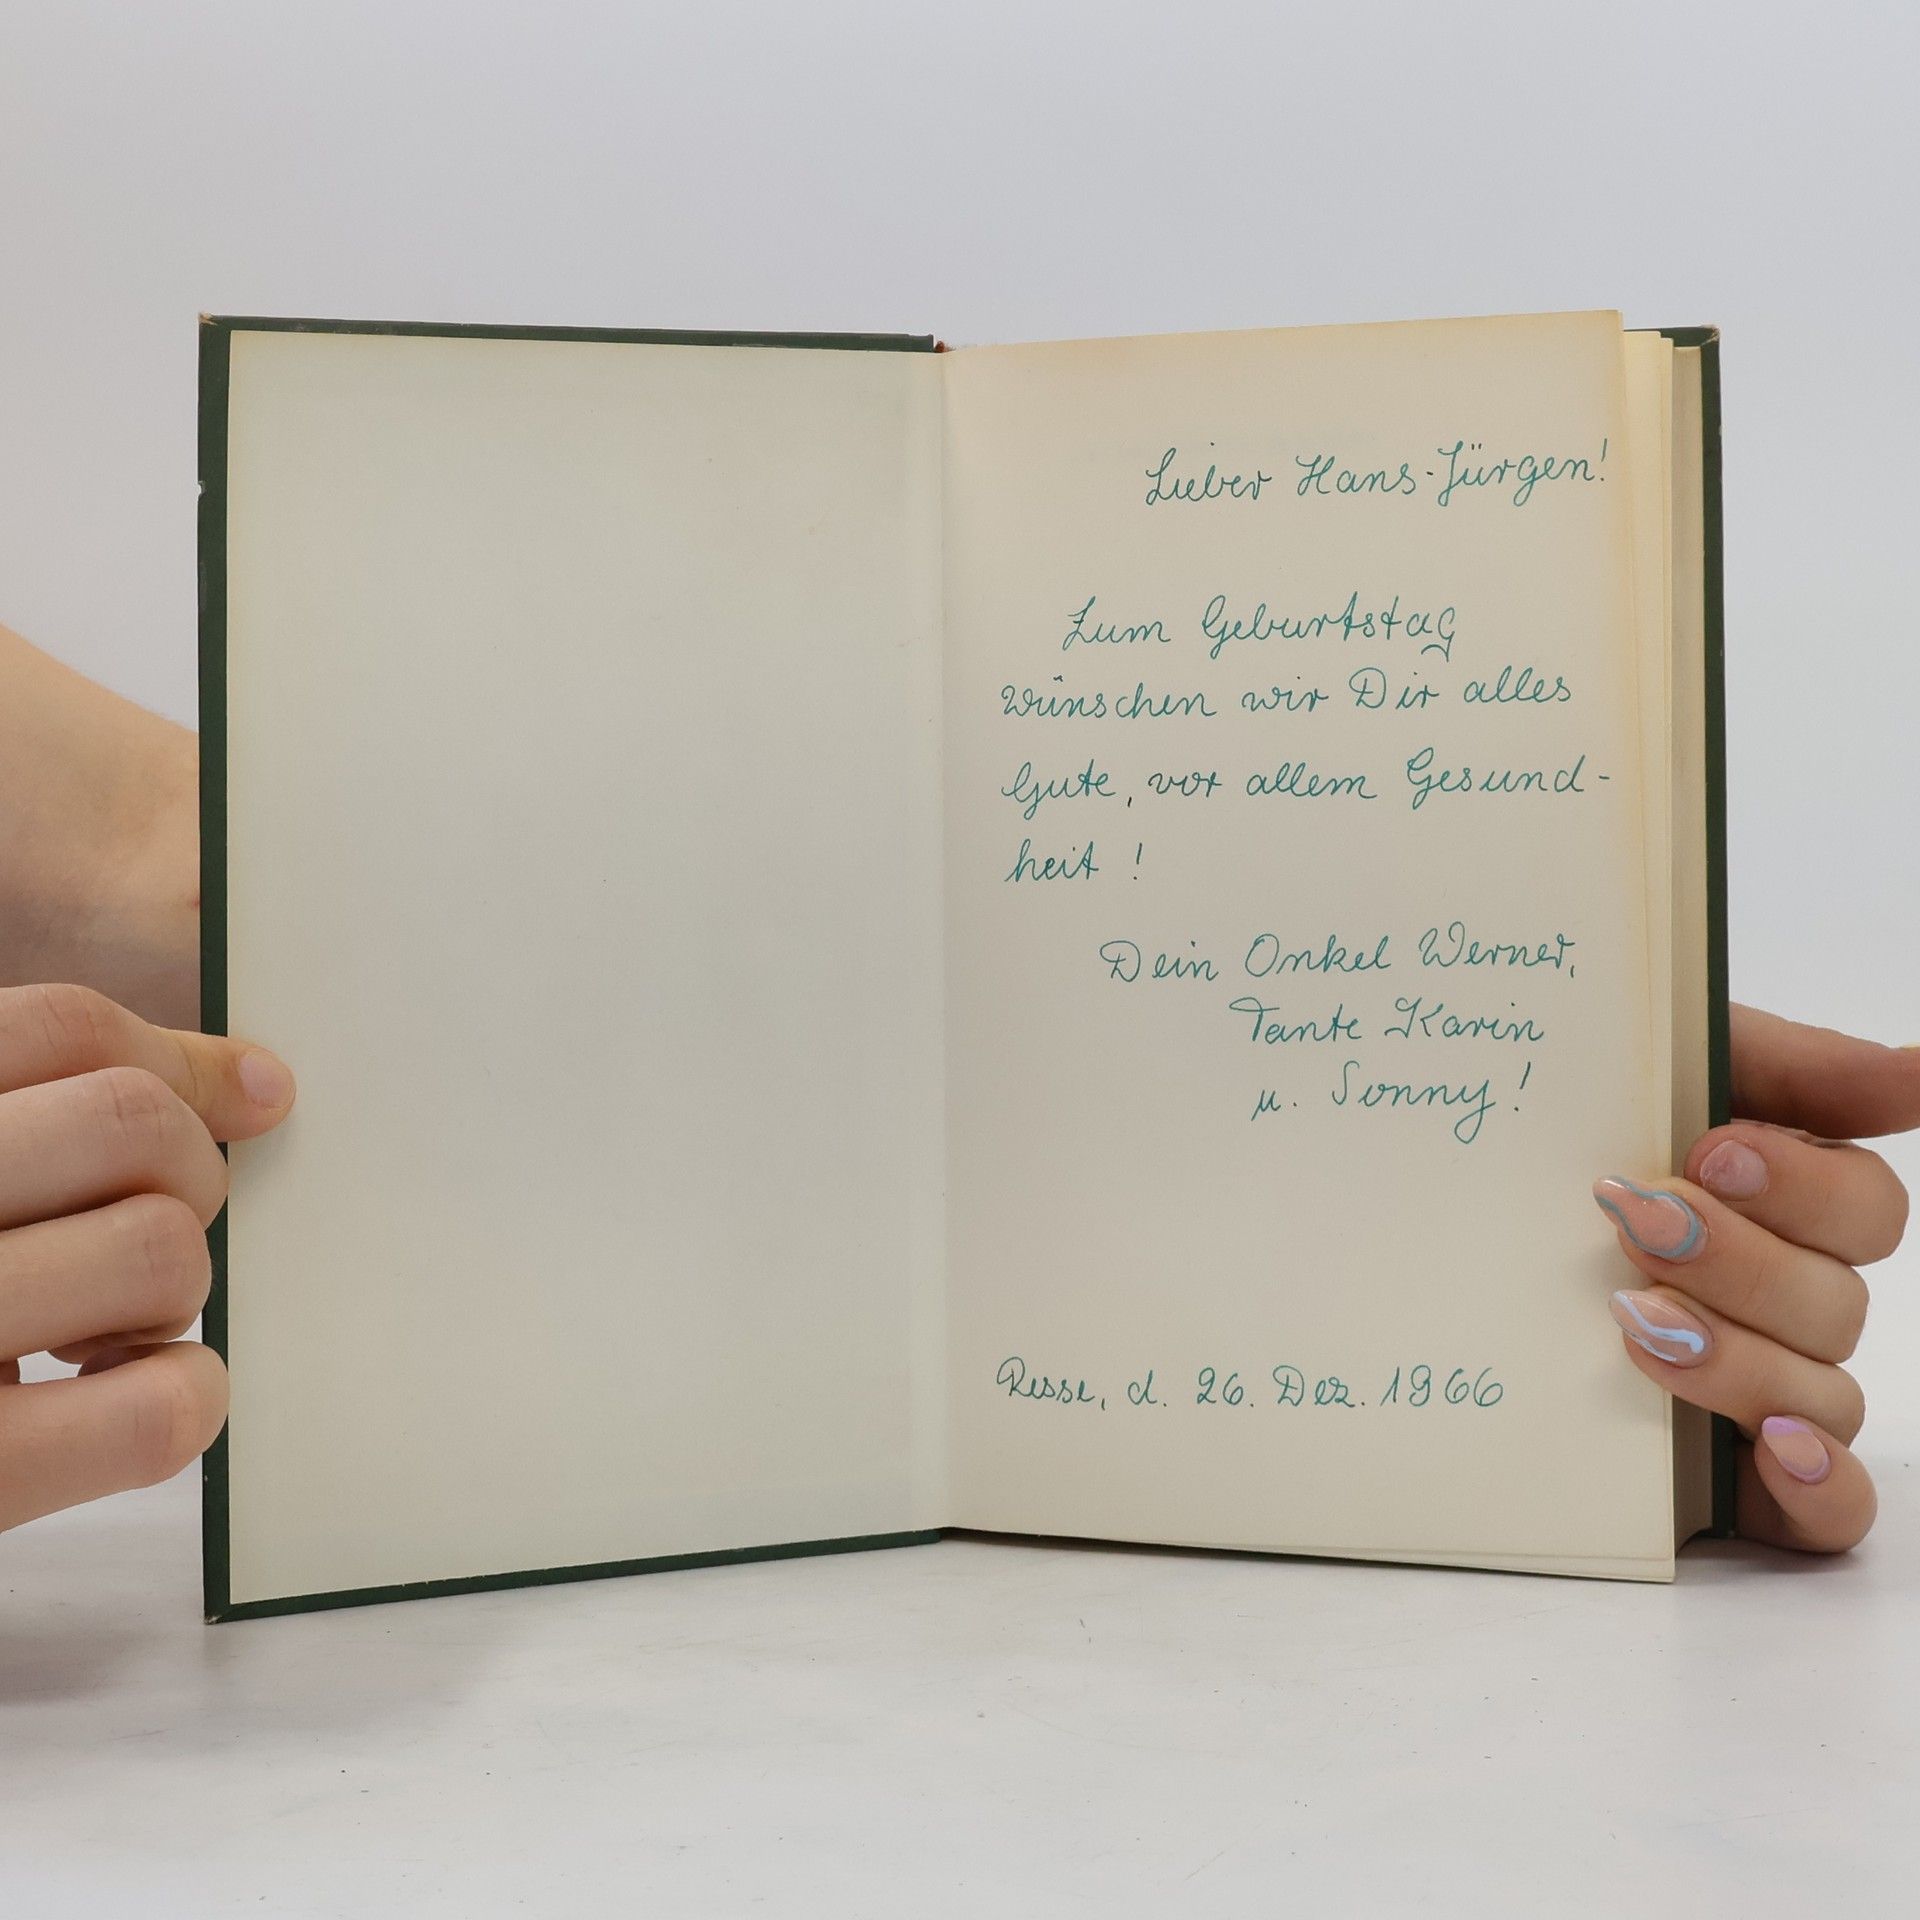 Lieber Hans-Jürgen!
Zum Geburtstag
wünschen wir Dir alles
Gute, vor allem Gesund-
heit !
Dein Onkel Werner,
Tante Karin
u. Sonny!
Resse, d. 26. Dez. 1966